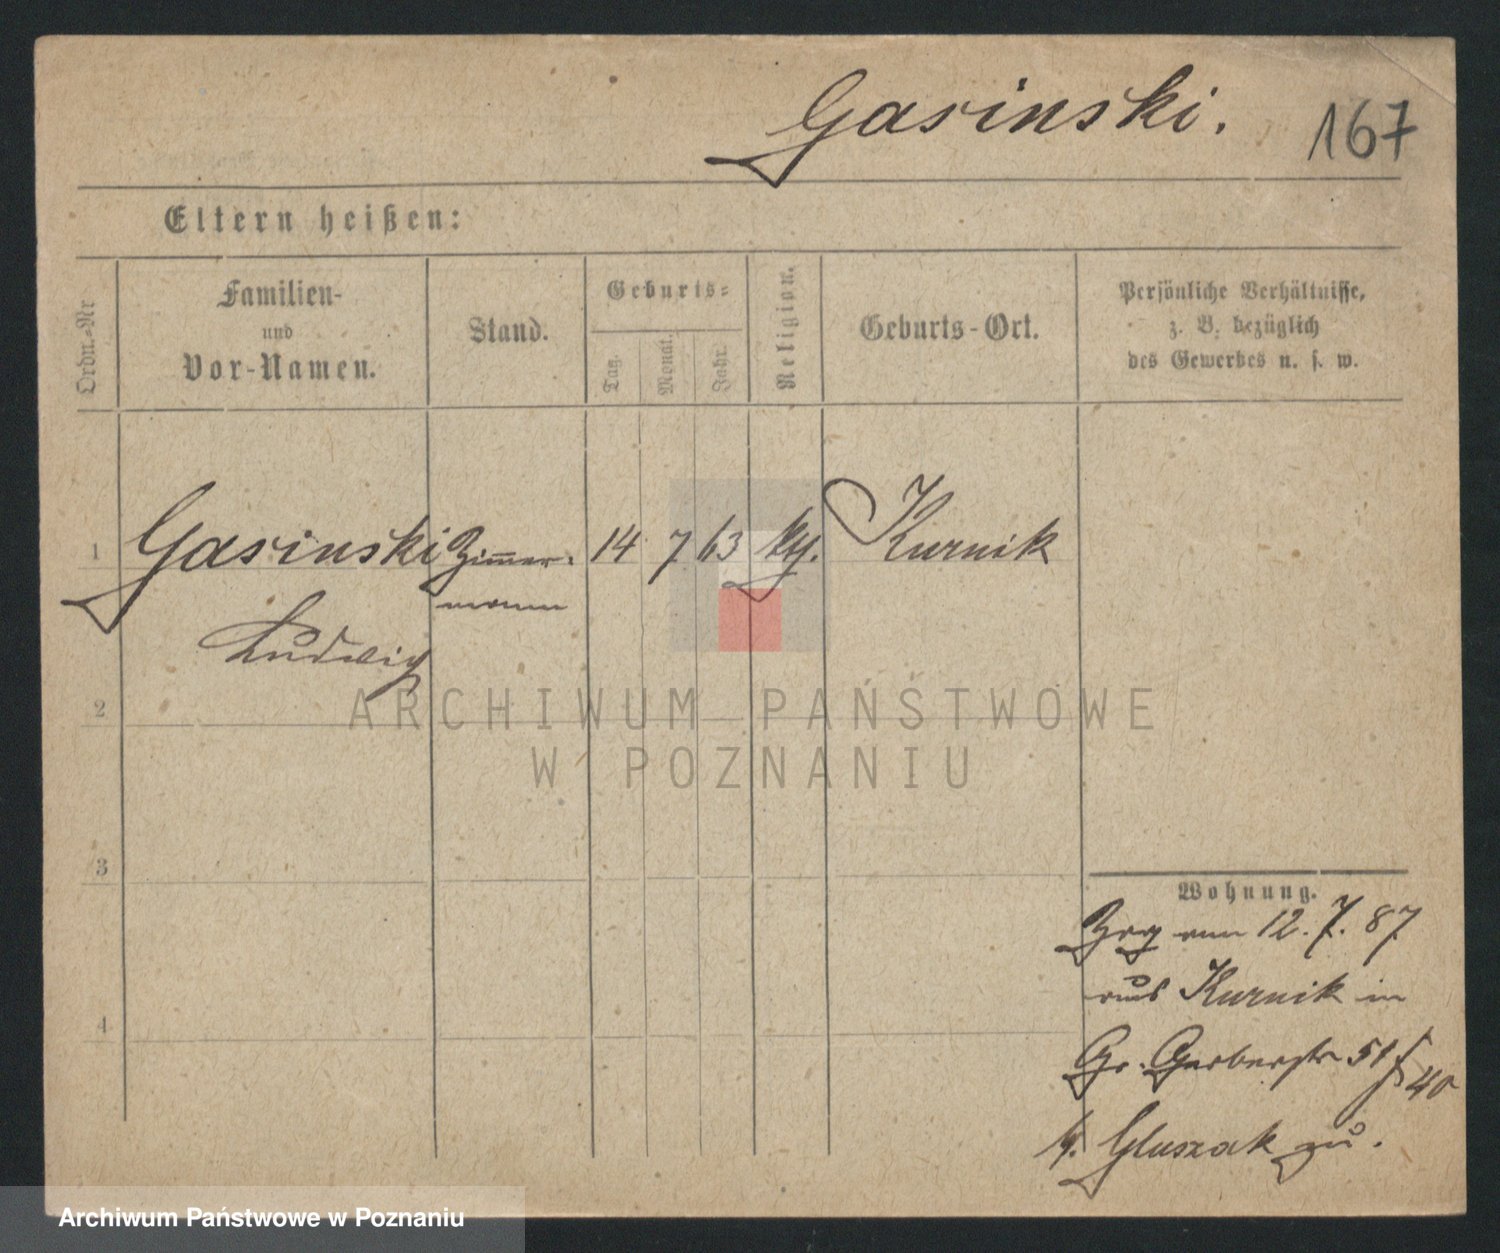 Gasinski. 167
Eltern heißen:
Ordn.-Nr
Familien-
und
Vor-Namen.
Stand.
Geburts-
Tag.
Monat.
Jahr.
Religion.
Geburts-Ort.
Persönliche Verhältnisse,
z. B. bezüglich
des Gewerbes u. s. w.
1 Gasinski Zimmer- 14 7 63 kth. Kurnik
mann
Ludwig
2
ARCHIWUM PAŃSTWOWE
W POZNANIU
3
Wohnung.
12. 7. 87
aus Kurnik in
4
Gr. Gerberstr 51
40
b. Gluszak zu.
Archiwum Państwowe w Poznaniu